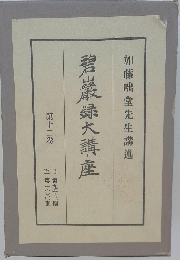 加藤咄堂先生講述
碧巖録大講座
第十二卷